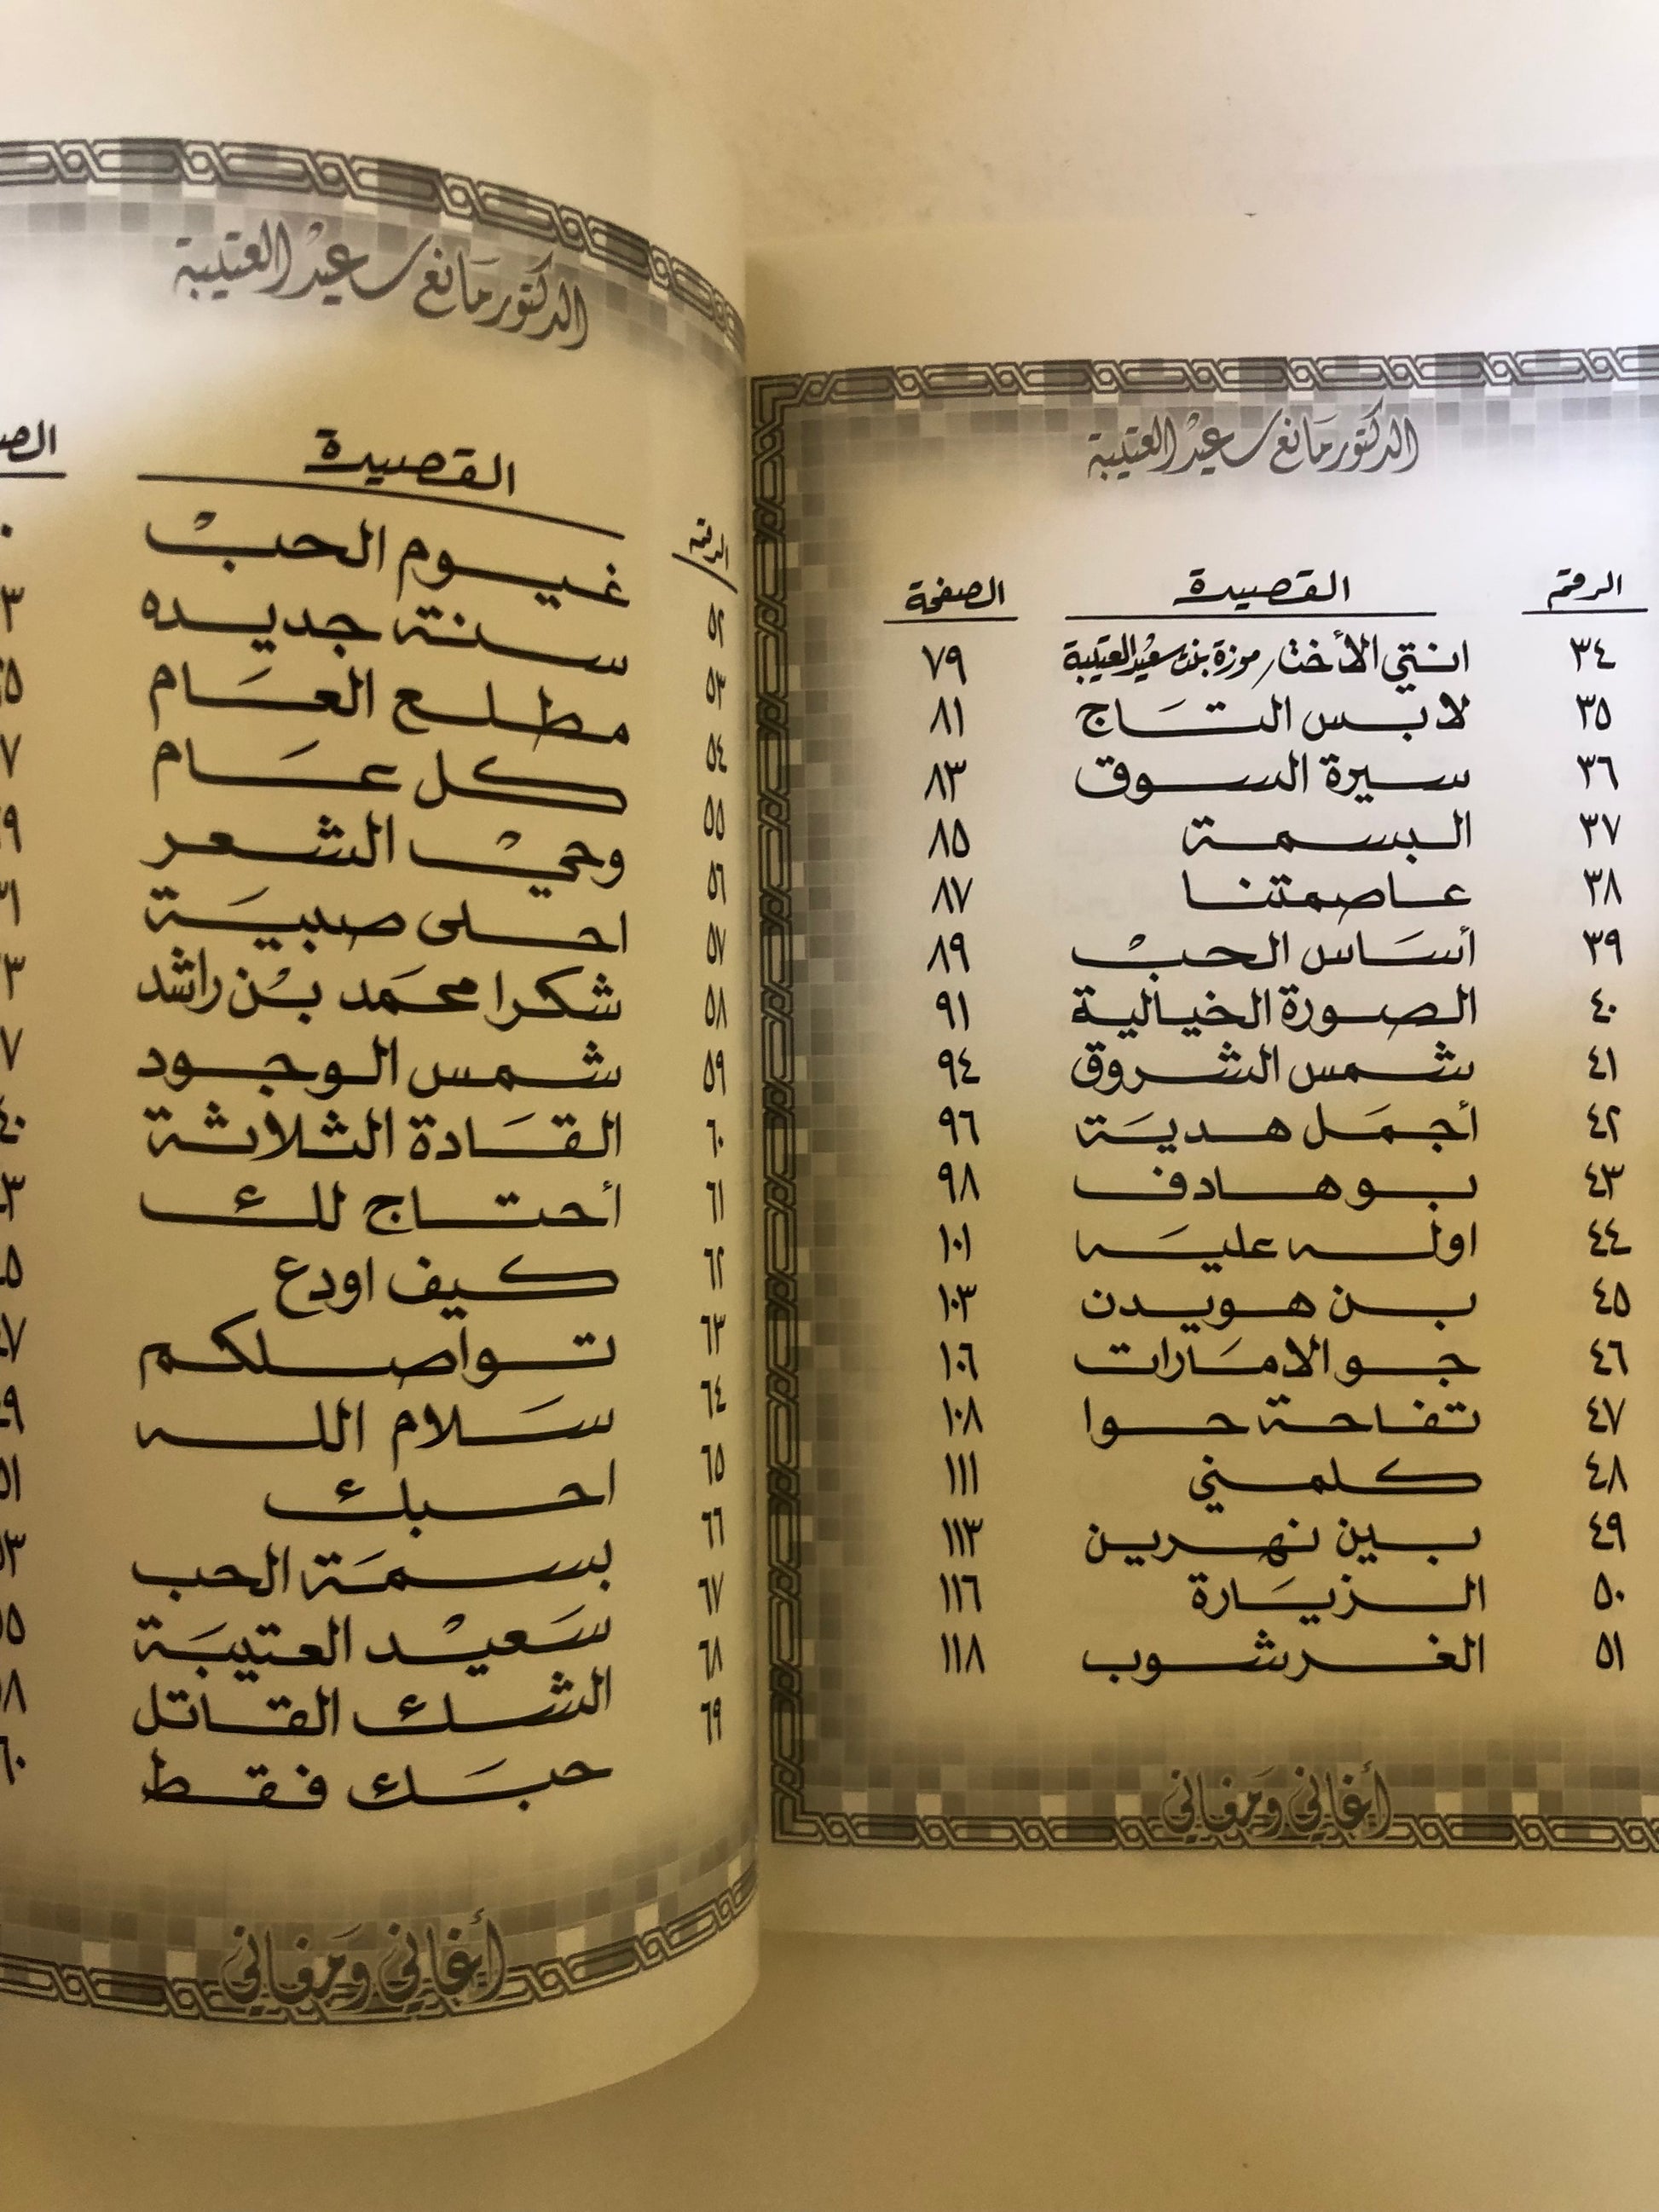 الدكتور مانع سعيد العتيبة
الرقم القصيدة الصفحة
٣٤ انتي الأخت/ موزة بنت سعيد العتيبة ٧٩
٣٥ لابس التاج ٨١
٣٦ سيرة السوق ٨٣
٣٧ البسمة ٨٥
٣٨ عاصمتنا ٨٧
٣٩ أساس الحب ٨٩
٤٠ الصورة الخيالية ٩١
٤١ شمس الشروق ٩٤
٤٢ أجمل هدية ٩٦
٤٣ بوهادف ٩٨
٤٤ اوله عليه ١٠١
٤٥ بن هويدن ١٠٣
٤٦ جو الامارات ١٠٦
٤٧ تفاحة حوا ١٠٨
٤٨ كلمني ١١١
٤٩ بين نهرين ١١٣
٥٠ الزيارة ١١٦
٥١ الغرشوب ١١٨
أغاني ومغاني
الدكتور مانع سعيد العتيبة
الرقم القصيدة
٥٢ غيوم الحب
٥٣ سنة جديده
٥٤ مطلع العام
٥٥ كل عام
٥٦ وحي الشعر
٥٧ احلى صبية
٥٨ شكرا محمد بن راشد
٥٩ شمس الوجود
٦٠ القادة الثلاثة
٦١ أحتاج لك
٦٢ كيف اودع
٦٣ تواصلكم
٦٤ سلام الله
٦٥ احبك
٦٦ بسمة الحب
٦٧ سعيد العتيبة
٦٨ الشك القاتل
٦٩ حبك فقط
أغاني ومغاني